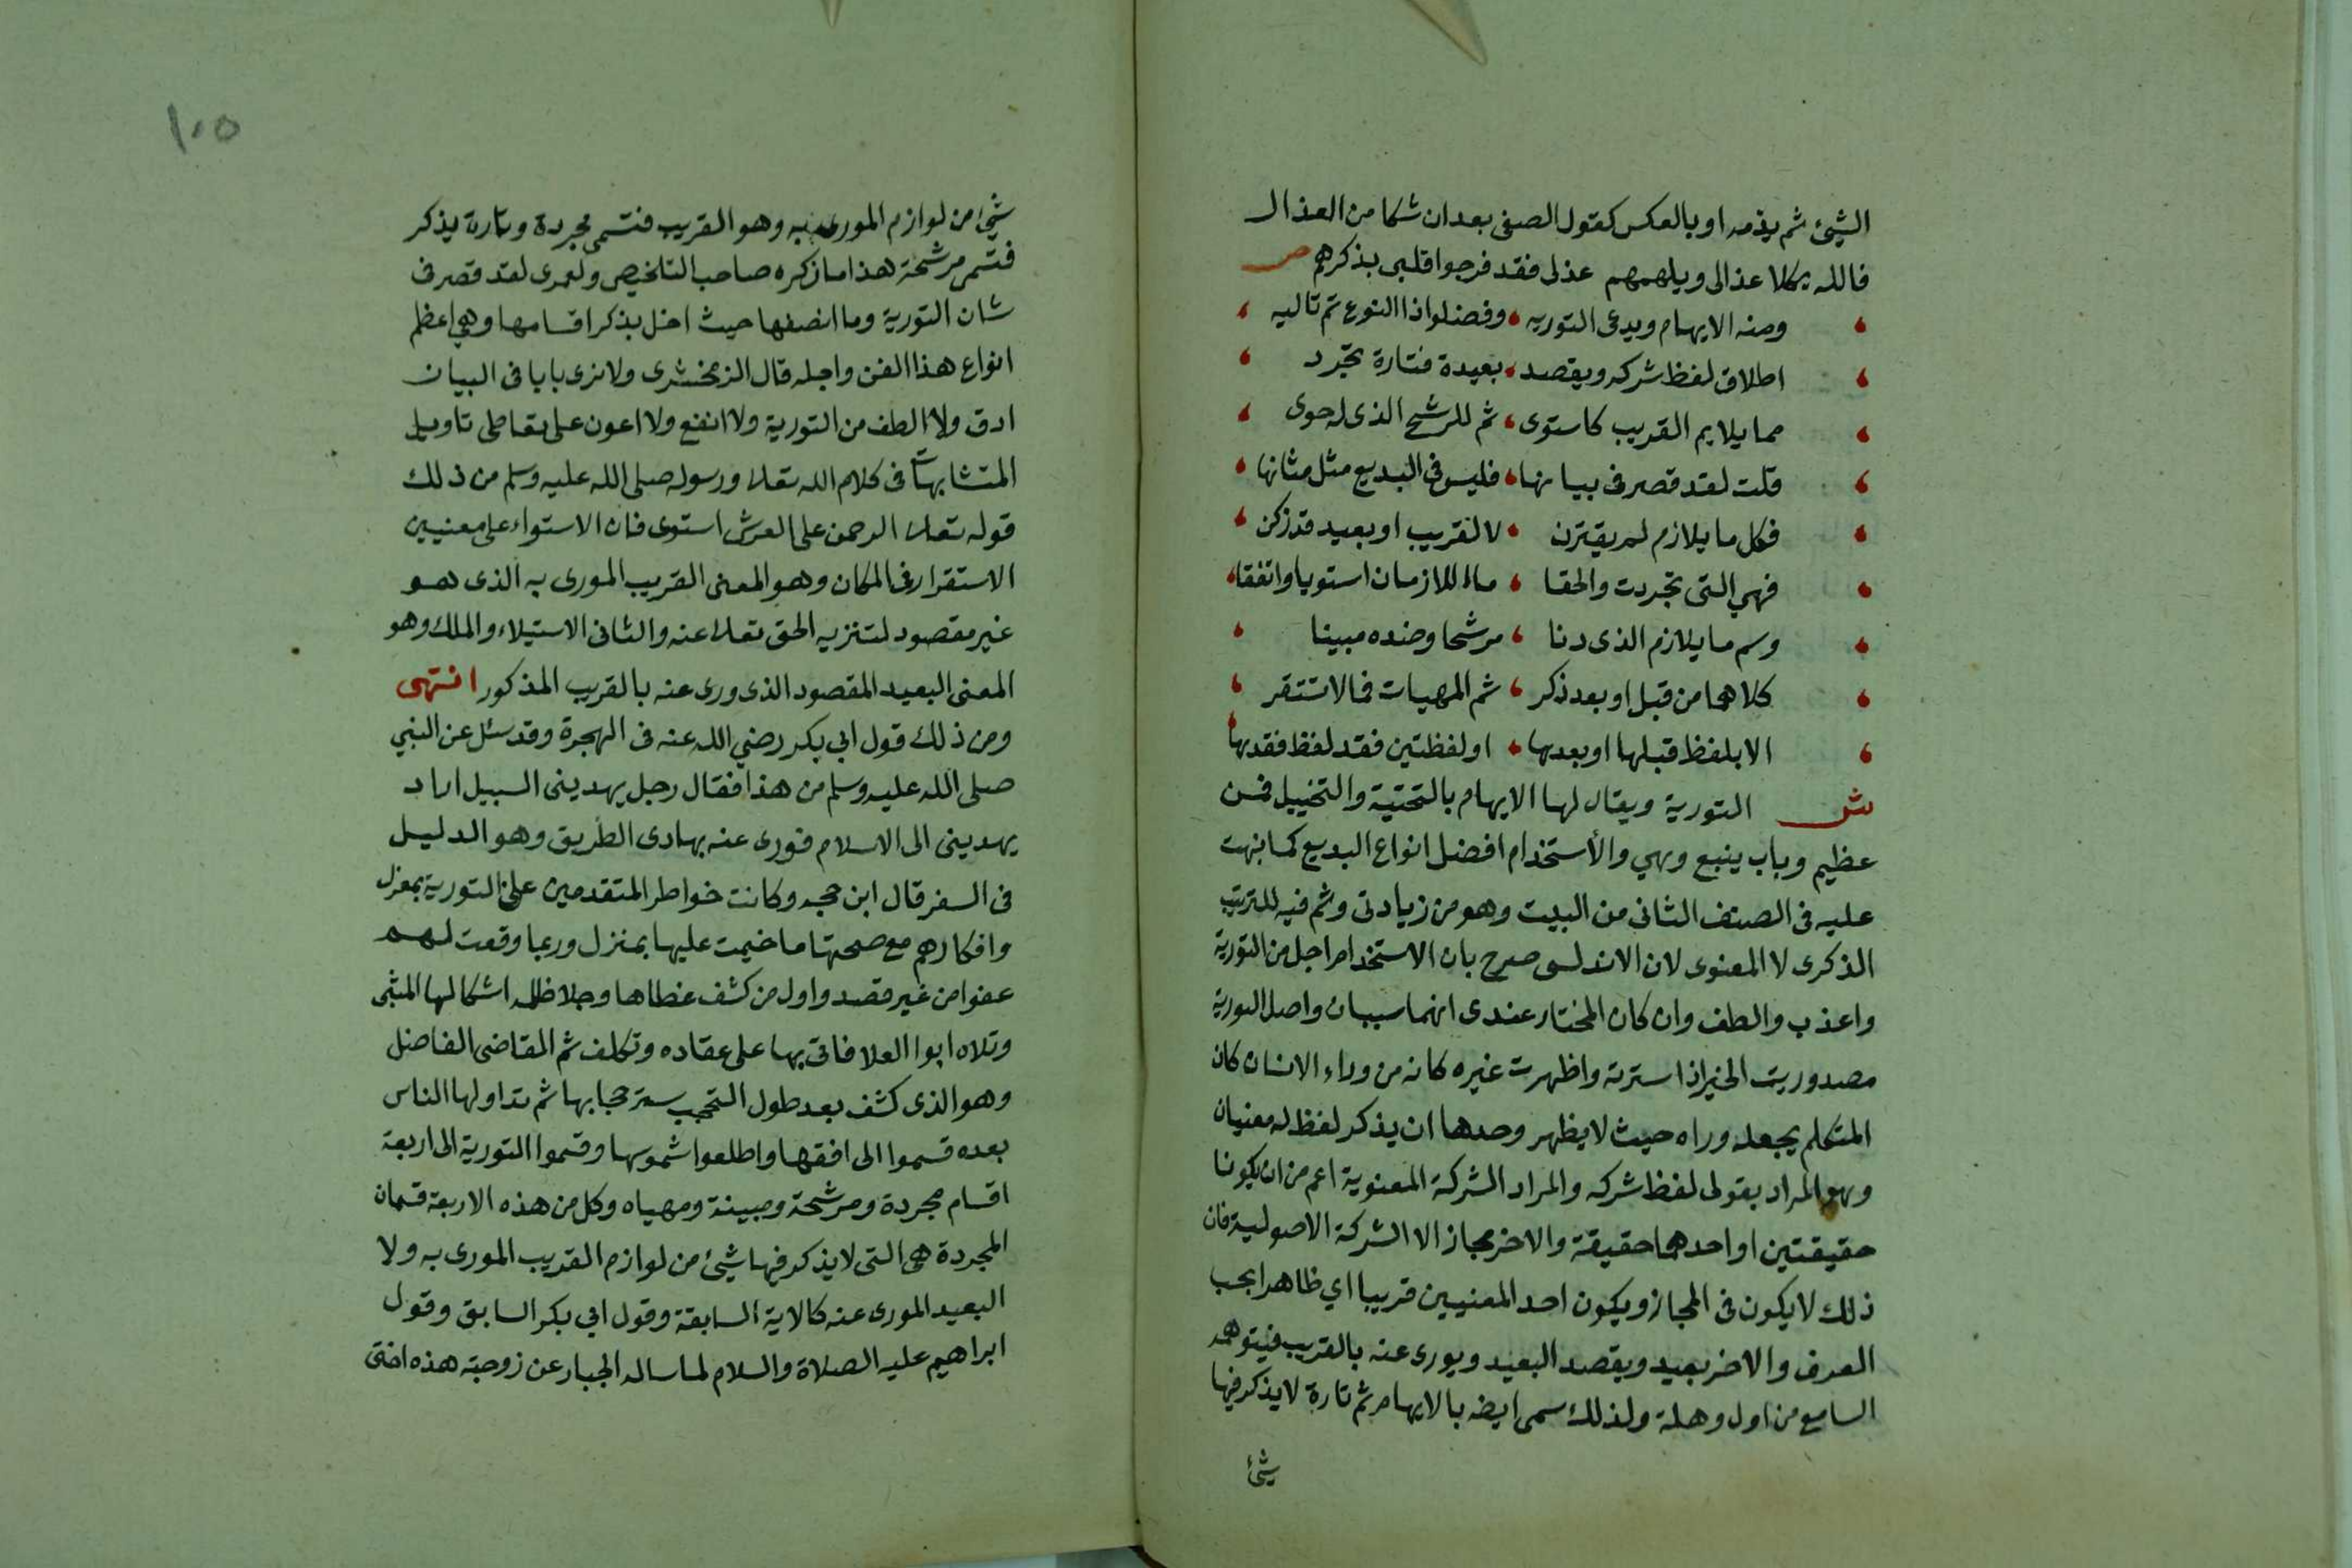 الشيئ ثم يذمه او بالعكس كقول الصفى بعد ان شكا من العذال
فالله يكلا عذالى ويلهمهم عذلى فقد فرجوا قلبى بذكرهم ص
ومنه الايهام ويدعى التوريه وفضلوا ذا النوع ثم تاليه
اطلاق لفظ شركه ويقصد بعيدة فتارة تجرد
مما يلايم القريب كاستوى ثم للرشح الذى له حوى
قلت لقد قصر فى بيانها فليس فى البديع مثل مثانها
فكل ما يلازم لم يقترن لا لقريب او بعيد قد زكن
فهى التى تجردت والحقا ما اللازمان استويا واتفقا
وسم ما يلازم الذى دنا مرشحا وضده مبينا
كلاهما من قبل او بعد ذكر ثم المهيات فما لا تستقر
الا بلفظ قبلها او بعدها او لفظتين فقد لفظ فقدها
ش التورية ويقال لها الايهام بالتحتية والتخييل فمن
عظيم وباب ينبع وهي والأستخدام افضل انواع البديع كما نبهت
عليه فى الصنف الثانى من البيت وهو من زيادتى وثم فيه للترتيب
الذكرى لا المعنوى لان الاندلسى صرح بان الاستخدام اجل من التورية
واعذب والطف وان كان المختار عندى انهما سيان واصل التورية
مصدوريت الخير اذا سترته واظهرت غيره كانه من وراء الانسان كان
المتكلم يجعله وراه حيث لا يظهر وحدها ان يذكر لفظ له معنيان
وهو المراد بقولى لفظ شركه والمراد الشركة المعنوية اعم من ان يكونا
حقيقتين او احدهما حقيقة والاخر مجاز الا الشركة الاصولية فان
ذلك لا يكون فى المجاز ويكون احد المعنيين قريبا اي ظاهرا بحب
العرف والاخر بعيد ويقصد البعيد ويورى عنه بالقريب فيتوهمه
السامع من اول وهلة ولذلك سمى ايضه بالايهام ثم تارة لا يذكر فيها
شيئ
١٠٥
شيئ من لوازم المورى به وهو القريب فتسمى مجردة وتارة يذكر
فتسمى مرشحة هذا ما ذكره صاحب التلخيص ولعمرى لقد قصر فى
شان التورية وما انصفها حيث اخل بذكر اقسامها وهى اعظم
انواع هذا الفن واجله قال الزمخشرى ولا نرى بابا فى البيان
ادق ولا الطف من التورية ولا انفع ولا اعون على تعاطى تاويل
المتشابهات فى كلام الله تعلا ورسوله صلى الله عليه وسلم من ذلك
قوله تعلا الرحمن على العرش استوى فان الاستواء على معنيين
الاستقرار فى المكان وهو المعنى القريب المورى به الذى هو
غير مقصود لتنزيه الحق تعلا عنه والثانى الاستيلاء والملك وهو
المعنى البعيد المقصود الذى ورى عنه بالقريب المذكور انتهى
ومن ذلك قول ابي بكر رضي الله عنه فى الهجرة وقد سئل عن النبي
صلى الله عليه وسلم من هذا فقال رجل يهدينى السبيل اراد
يهدينى الى الاسلام فورى عنه بهادى الطريق وهو الدليل
فى السفر قال ابن حجه وكانت خواطر المتقدمين على التورية بمعزل
وافكارهم مع صحتها ما خيمت عليها بمنزل وربما وقعت لهم
عفوا من غير قصد واول من كشف غطاها وجلا ظلمه اشكالها المتنبى
وتلاه ابوا العلا فاتى بها على عقاده وتكلف ثم القاضى الفاضل
وهو الذى كشف بعد طول التحجب ستر حجابها ثم تداولها الناس
بعده قسموا الى افقها واطلعوا شموسها وقسموا التورية الى اربعة
اقسام مجردة ومرشحة ومبينة ومهياه وكل من هذه الاربعة قسمان
المجردة هى التى لا يذكر فيها شيئ من لوازم القريب المورى به ولا
البعيد المورى عنه كالاية السابقة وقول ابي بكر السابق وقول
ابراهيم عليه الصلاة والسلام لما ساله الجبار عن زوجته هذه اختى